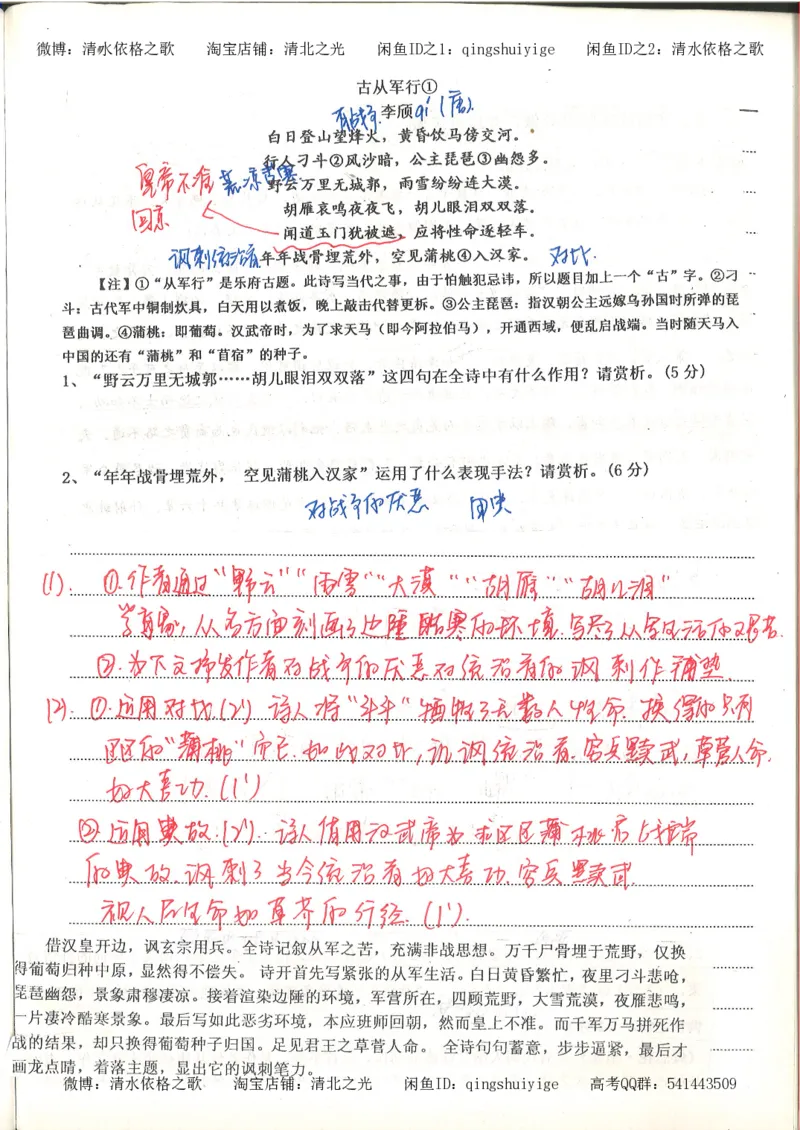 微博：清水依格之歌 淘宝店铺：清北之光 闲鱼ID之1：qingshuiyige 闲鱼ID之2：清水依格之歌
古从军行①
反战争 李颀qí（唐）.
白日登山望烽火，黄昏饮马傍交河。
行人刁斗②风沙暗，公主琵琶③幽怨多。
皇帝不准
回京
荒凉苦寒
野云万里无城郭，雨雪纷纷连大漠。
胡雁哀鸣夜夜飞，胡儿眼泪双双落。
闻道玉门犹被遮，应将性命逐轻车。
讽刺统治者 年年战骨埋荒外，空见蒲桃④入汉家。 对比.
【注】①“从军行”是乐府古题。此诗写当代之事，由于怕触犯忌讳，所以题目加上一个“古”字。②刁
斗：古代军中铜制炊具，白天用以煮饭，晚上敲击代替更柝。③公主琵琶：指汉朝公主远嫁乌孙国时所弹的琵
琶曲调。④蒲桃：即葡萄。汉武帝时，为了求天马（即今阿拉伯马），开通西域，便乱启战端。当时随天马入
中国的还有“蒲桃”和“苜宿”的种子。
1、“野云万里无城郭……胡儿眼泪双双落”这四句在全诗中有什么作用？请赏析。(5 分)
2、“年年战骨埋荒外， 空见蒲桃入汉家”运用了什么表现手法？请赏析。(6 分)
对战争的厌恶 用典
(1). ①.作者通过“野云”“雨雪”“大漠”“胡雁”“胡儿泪”
等意象，从多方面刻画了边陲酷寒的环境.写尽了从军生活的艰苦.
②.为下文抒发作者对战争的厌恶对统治者的讽刺作铺垫.
(2). ①.运用对比.(2') 诗人将 牺牲了无数人性命.换得的只有
区区的“蒲桃”而已.如此对比，讥讽统治者.穷兵黩武，草菅人命.
好大喜功.(1')
②.运用典故.(2').诗人借用汉武帝为求区区蒲桃 战端
的典故.讽刺了当今统治者好大喜功.穷兵黩武.
视人民生命如草芥的行径.(1').
借汉皇开边，讽玄宗用兵。全诗记叙从军之苦，充满非战思想。万千尸骨埋于荒野，仅换
得葡萄归种中原，显然得不偿失。 诗开首先写紧张的从军生活。白日黄昏繁忙，夜里刁斗悲呛，
琵琶幽怨，景象肃穆凄凉。接着渲染边陲的环境，军营所在，四顾荒野，大雪荒漠，夜雁悲鸣，
一片凄冷酷寒景象。最后写如此恶劣环境，本应班师回朝，然而皇上不准。而千军万马拼死作
战的结果，却只换得葡萄种子归国。足见君王之草菅人命。 全诗句句蓄意，步步逼紧，最后才
画龙点睛，着落主题，显出它的讽刺笔力。
微博：清水依格之歌 淘宝店铺：清北之光 闲鱼ID：qingshuiyige 高考QQ群：541443509